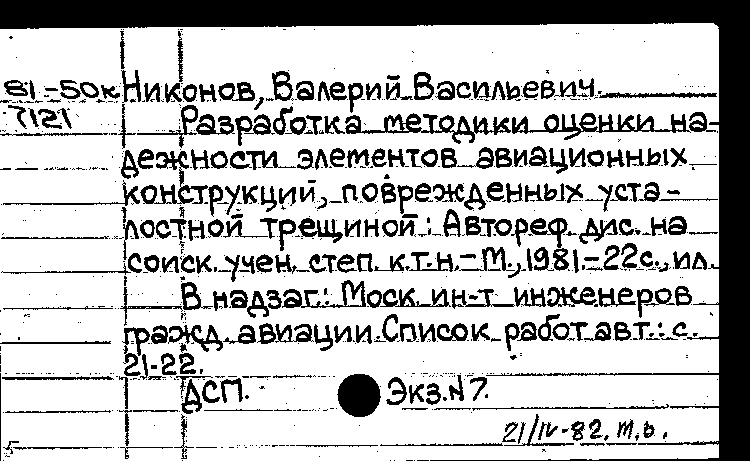 81-50к Никонов, Валерий Васильевич.
7121 Разработка методики оценки на-
дежности элементов авиационных
конструкций, поврежденных уста-
лостной трещиной: Автореф. дис. на
соиск. учен. степ. к.т.н.-М., 1981.-22с., ил.
В надзаг.: Моск. ин-т инженеров
гражд. авиации. Список работ авт.: с.
21-22.
ДСП. Экз.№7.
21/IV-82. М.в.
5